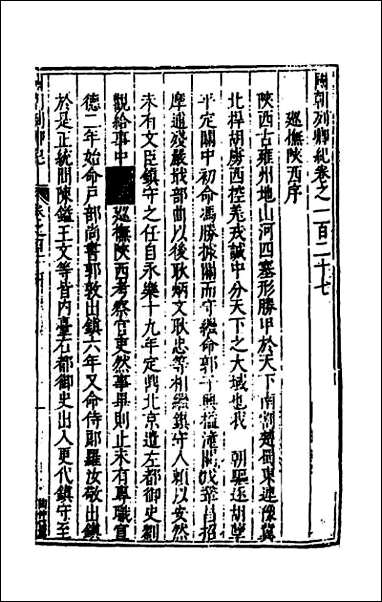 國朝列卿紀卷之一百二十七
巡撫陝西序
陝西古雍州地山河四塞形勝甲於天下南割楚蜀東連豫冀
北捍胡虜西控羌戎誠中分天下之大域也我 朝驅逐胡孽
平定關中初命馮勝據關而守繼命郭子興搤潼關 招
摩逋殘嚴 部曲以後耿炳文耿忠等相繼鎮守人賴以安然
未有文臣鎮守之任自永樂十九年定鼎北京遣左都御史劉
觀給事中 巡撫陝西考察官吏然事畢則止未有專職宣
德二年始命戶部尚書郭敦出鎮六年又命侍郎羅汝敬出鎮
於是正統間陳鎰王文等皆內臺右都御史出入更代鎮守至